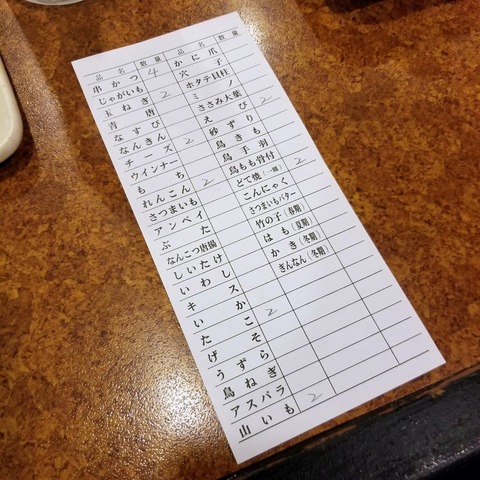 品名 数量 品名 数量
串かつ 4 かに爪
じゃがいも 穴子
玉ねぎ 2 ホタテ貝柱
青唐 ミノ
なすび ささみ大葉
なんきん えび 2
チーズ 2 砂ずり
ウインナー 鳥きも
もち 鳥手羽
れんこん 2 鳥もも骨付
さつまいも どて焼(一皿) 2
アンペイ こんにゃく
ぶた さつまいもバター
なんこつ唐揚 竹の子(春期)
しいたけ はも(夏期)
いわし かき(冬期)
キス ぎんなん(冬期)
いか
たこ 2
げそ
うずら
鳥ねぎ
アスパラ
山いも 2